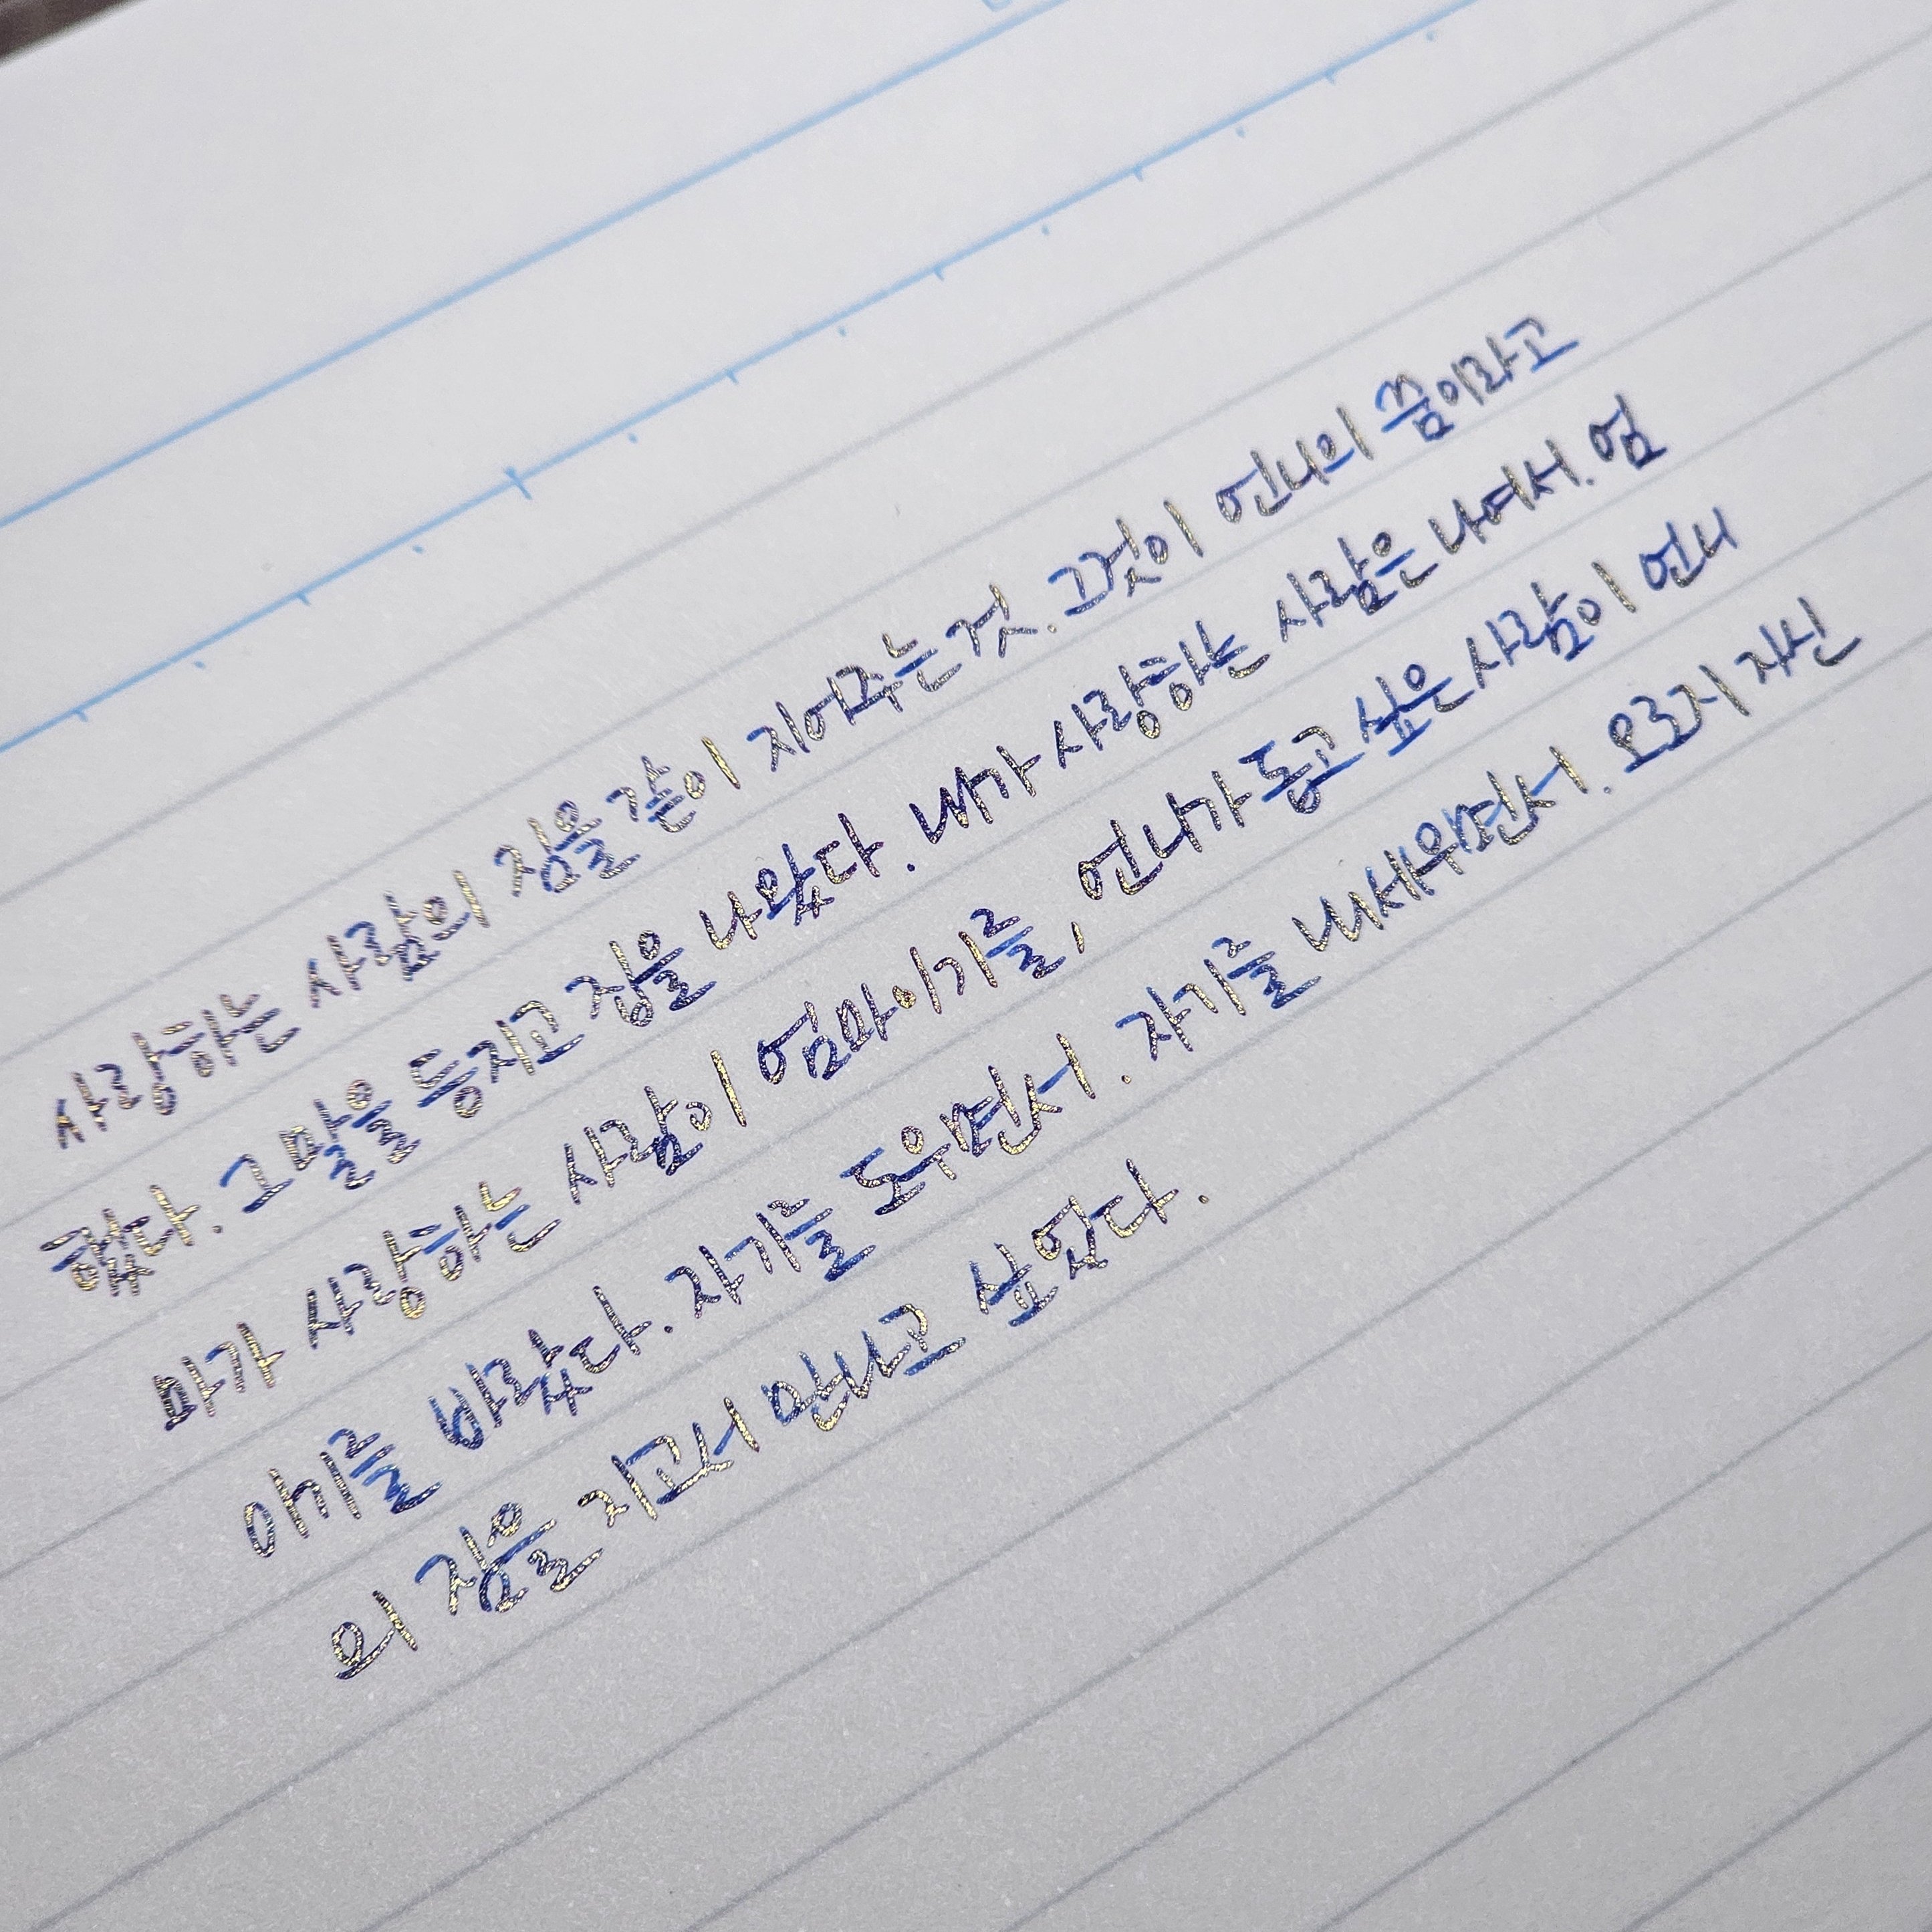 사랑하는 사람의 짐을 같이 지어주는 것. 그것이 언니의 꿈이라고
했다. 그 말을 등지고 짐을 나왔다. 내가 사랑하는 사람은 나여서. 엄
마가 사랑하는 사람이 엄마이기를, 언니가 돕고 싶은 사람이 언니
이기를 바랐다. 자기를 도우면서. 자기를 내세우면서. 오로지 자신
의 짐을 지고서 만나고 싶었다.